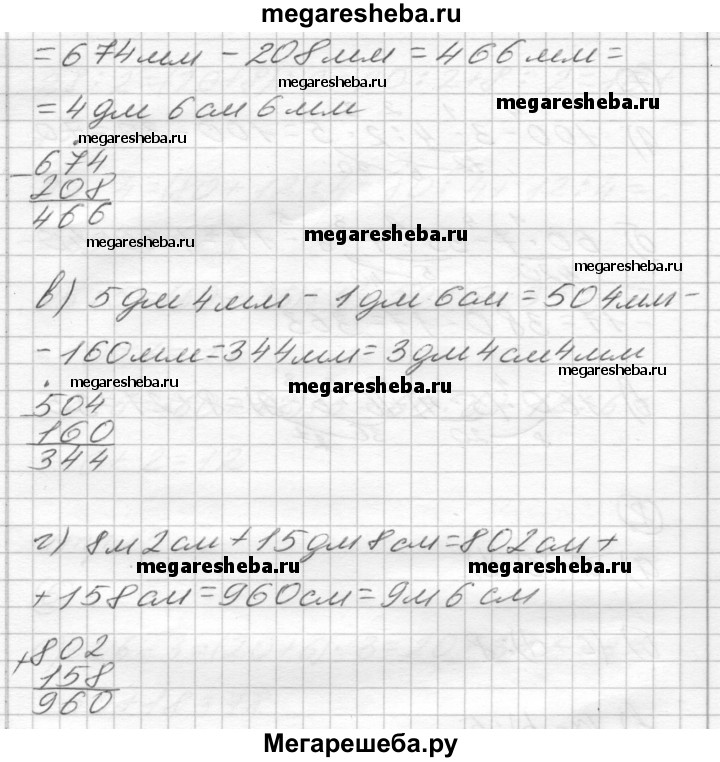 megaresheba.ru
= 674мм - 208мм = 466мм =
megaresheba.ru
megaresheba.ru
= 4дм 6см 6мм
megaresheba.ru
- 674
208
466
megaresheba.ru
megaresheba.ru
megaresheba.ru
в) 5дм 4мм - 1дм 6см = 504мм -
- 160мм = 344мм = 3дм 4см 4мм
megaresheba.ru
megaresheba.ru
megaresheba.ru
- 504
160
344
г) 8м 2см + 15дм 8см = 802см +
megaresheba.ru
megaresheba.ru
+ 158см = 960см = 9м 6см
+ 802
158
960
Мегарешеба.ру